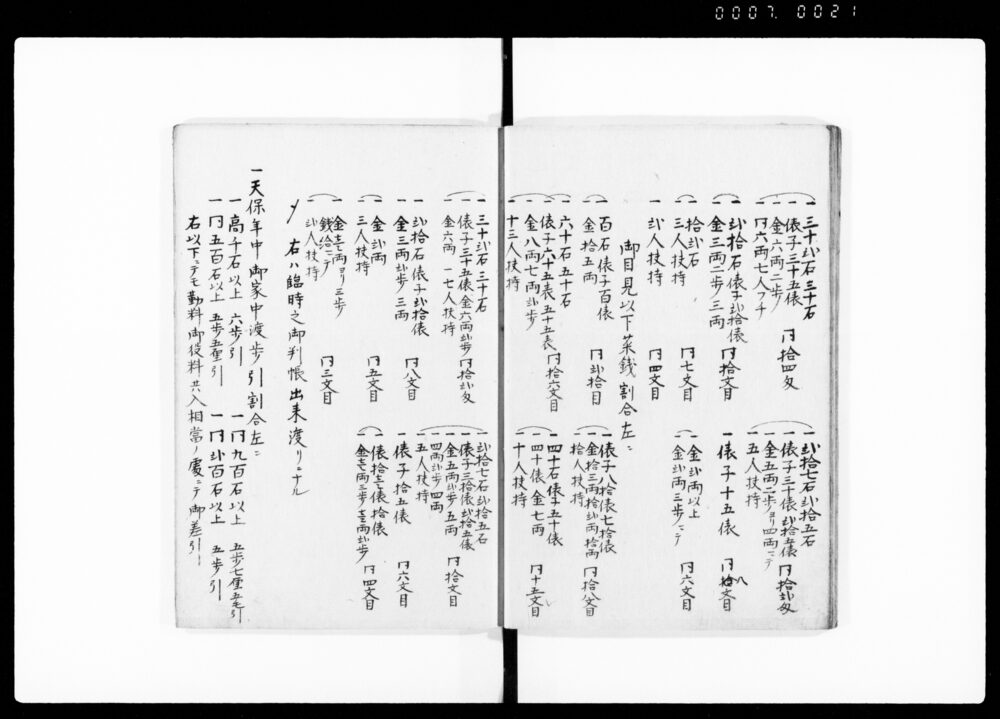 0007 0021
一三十弐石三十石
一俵子三十五俵
一金六両二歩
一円六両七人フチ
円拾四匁
一弐拾石俵子弐拾俵
一金三両二歩三両
円拾文目
一拾弐石
一三人扶持
円七文目
一弐人扶持
円四文目
一弐拾七石弐拾五石
一俵子三十俵弐拾五俵
一金五両二歩ヨリ四両ニテ
一五人扶持
円拾弐匁
一俵子十五俵
円八文目
一金弐両以上
一金弐両三歩ニテ
円六文目
御目見以下菜銭割合左ニ
一百石俵子百俵
一金拾五両
円弐拾目
一六十石五十石
一俵子六十五表五十五表
一金八両七両弐歩
一十三人扶持
円拾六文目
一俵子八拾俵七拾俵
一金拾三両拾弐両拾両
一拾人扶持
円拾八文目
一四十石俵子五十俵
一四十俵金七両
一十人扶持
円十五文目
一三十弐石三十石
一俵子三十五俵金六両弐歩
一金六両一七人扶持
円拾弐匁
一弐拾石俵子弐拾俵
一金三両弐歩三両
円八文目
一金弐両
一三人扶持
円五文目
一金壱両ヨリ三歩
一銭給ニテ
一弐人扶持
円三文目
一弐拾七石弐拾五石
一俵子三拾俵弐拾五俵
一金五両弐歩五両
一四両弐歩四両
一五人扶持
円拾文目
一俵子拾五俵
円六文目
一俵拾壱俵拾俵
一金壱両三歩壱両弐歩
円四文目
〆右ハ臨時之御判帳出来渡リニナル
一天保年中御家中渡歩引割合左ニ
一高千石以上六歩引
一円九百石以上五歩七厘五毛引
一円五百石以上五歩五厘引
一円弐百石以上五歩引
右以下ニテモ勤料御役料共入相當ノ處ニテ御差引